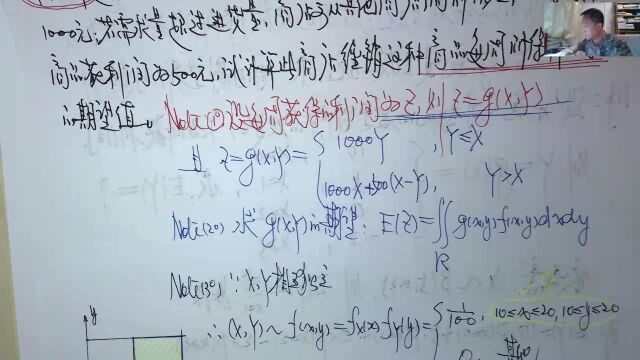 1000元,若需求量超过进货量,商店可从其他商店
商品获利润为500元,试计算此商店经销这种商品每周所得
的期望值。 Note(1°)设每周获得的利润为Z,则 Z=g(X,Y)
且 Z=g(X,Y)={ 1000Y , Y≤X
1000X+500(X-Y), Y>X
Note(2°) 求 g(X,Y)的期望. E(Z)=∬g(x,y)f(x,y)dxdy
R
Note(3°) ∵X,Y相互独立
∴(X,Y)~f(x,y)=f_X(x)f_Y(y)={ 1/100, 10≤x≤20,10≤y≤20
0, 其他
y